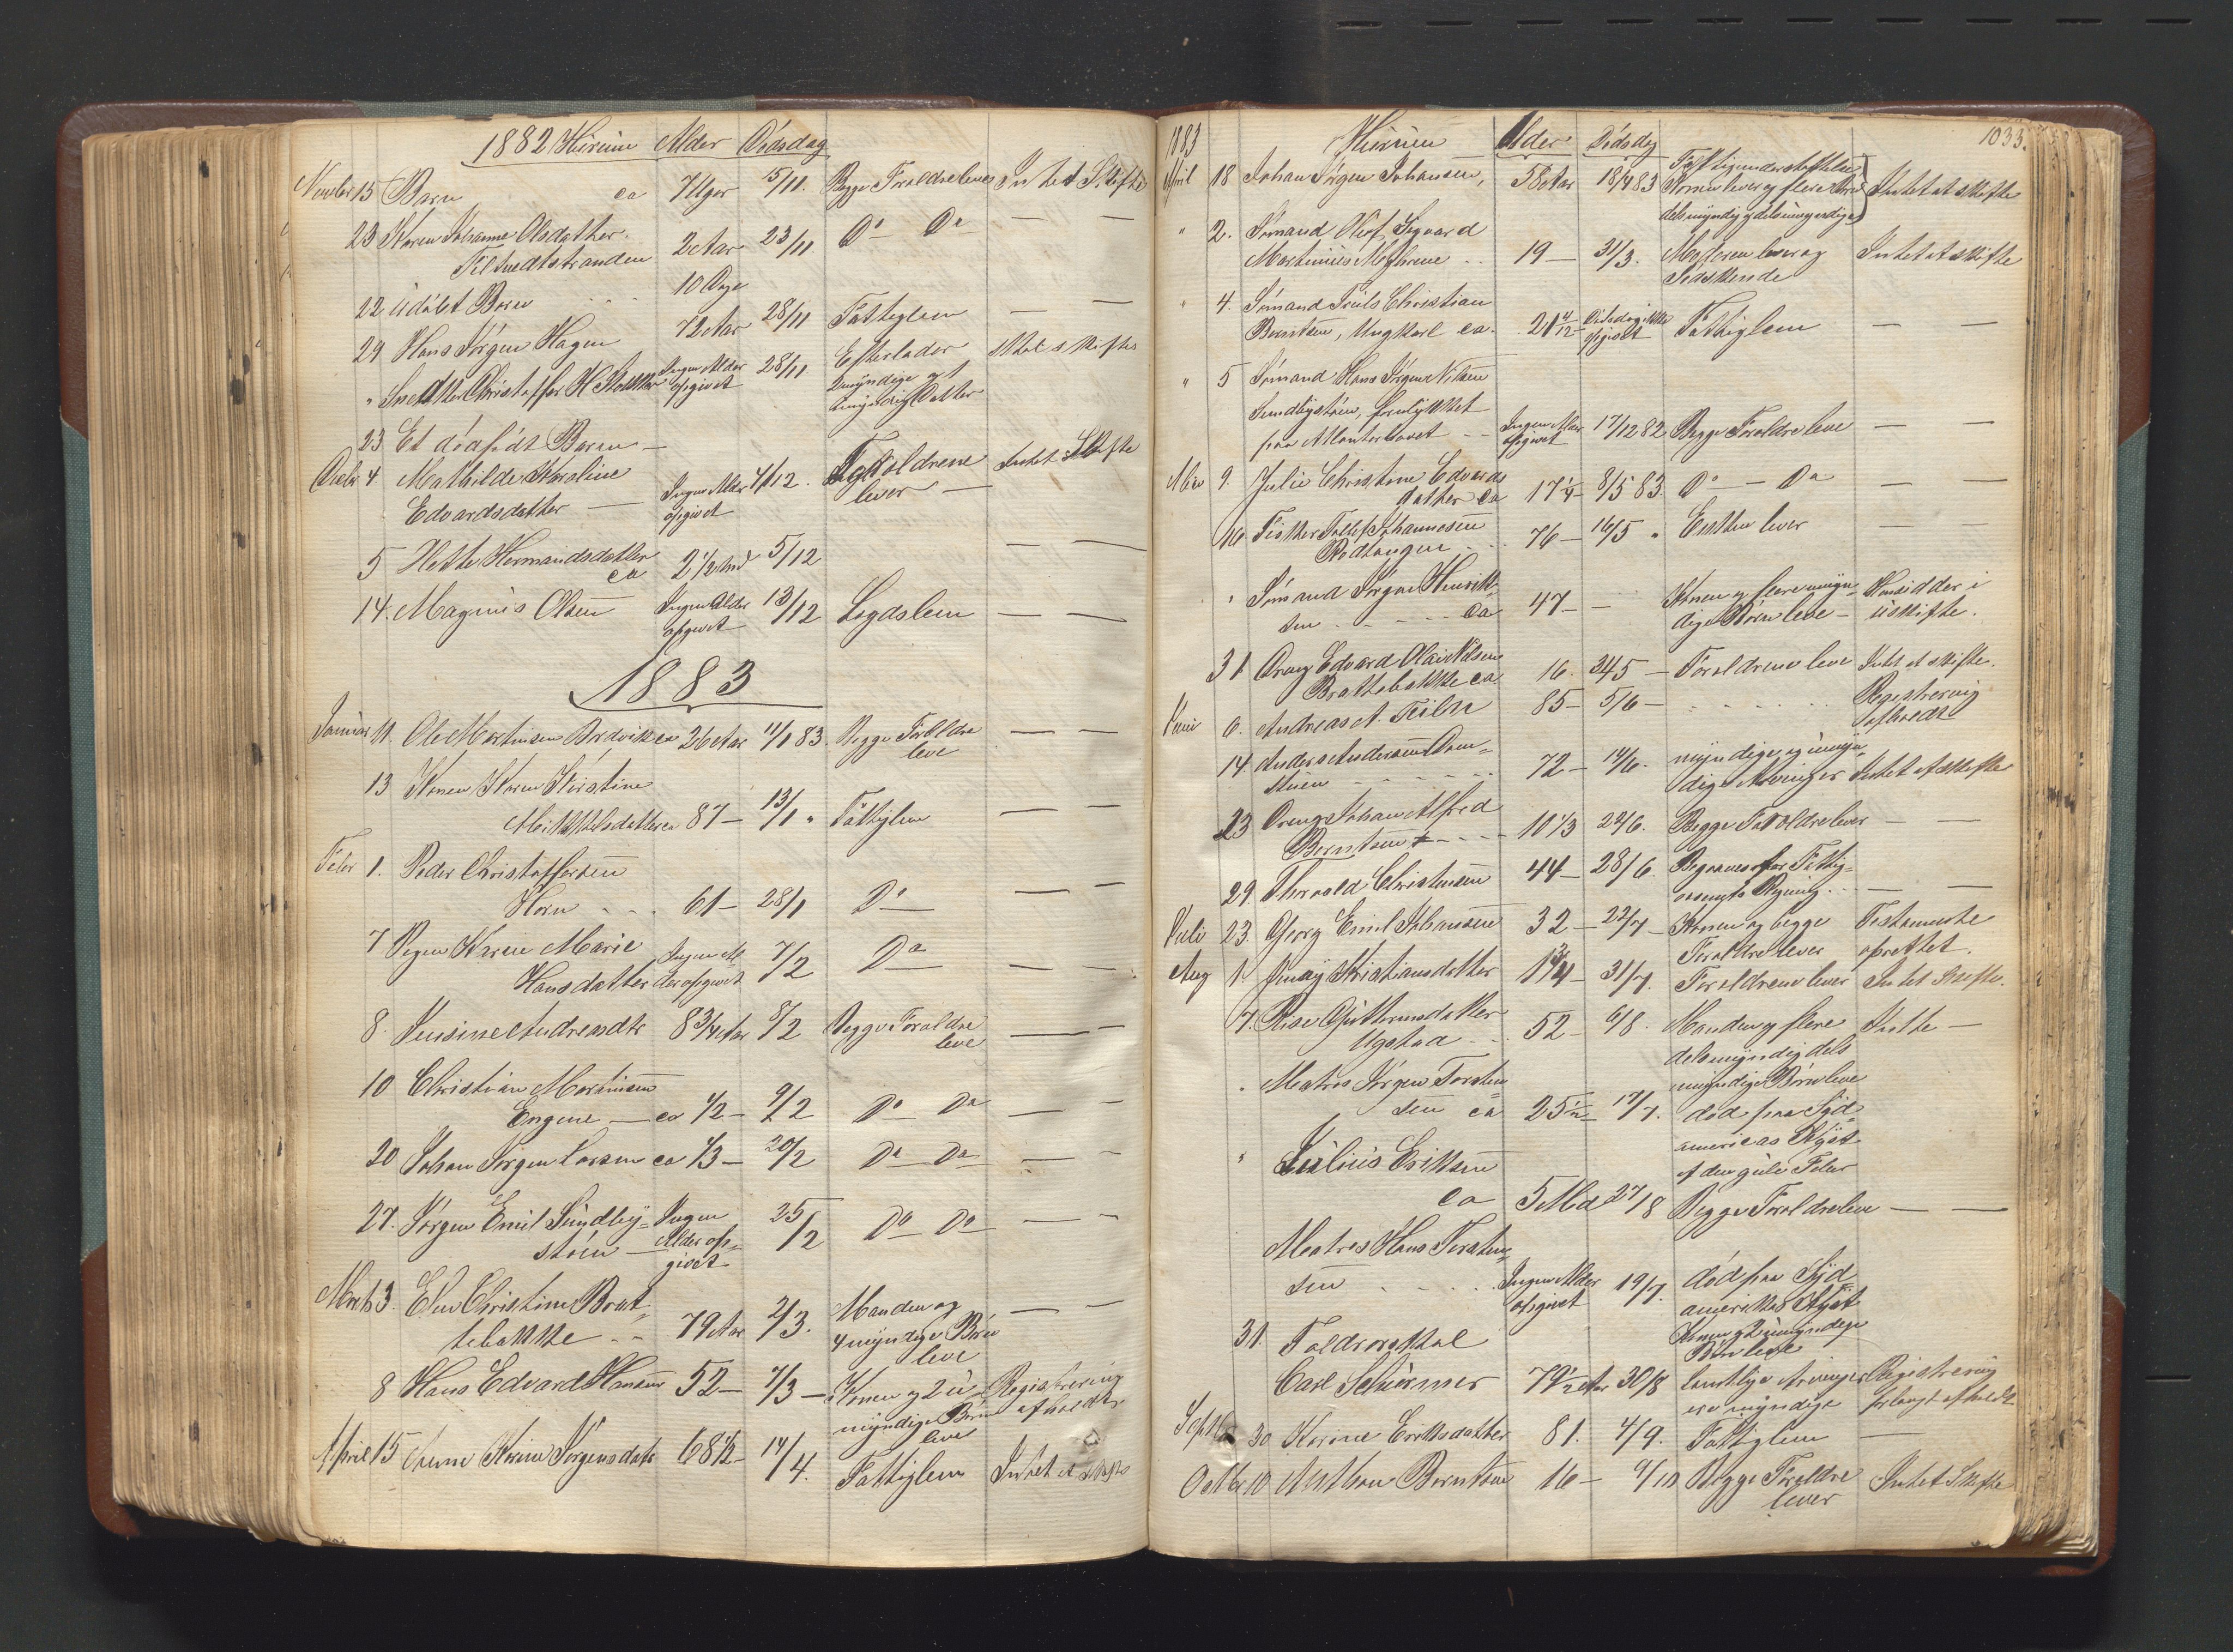 1882 Hurum Alder Dødsdag
Novbr 15 Barn ca 7 Uger 5/11. Begge Forældre leve Intet Skifte
23 Karen Johanne Olsdatter.
Tilknedtstranden 2 Aar 23/11 Do Do — —
22 Udøbt Barn . . . 10 Dage
29 Hans Jørgen Hagen 72 Aar 28/11 Fattiglem — —
" Snedker Christoffer H. Ingen Alder opgivet 28/11 Efterlader Skal skiftes
2 myndige og 1
umyndig Datter
23 Et dødfødt Barn —
Decbr 4 Mathilde Karoline
Edvardsdatter — Ingen Alder opgivet 4/12. Forældrene
lever — Intet Skifte
5 Hette Hermandsdatter
ca 2 1/2 Md 5/12 — —
14. Magnus Olsen Ingen Alder
opgivet 13/12 Logdslem — —
1883
Januar 11. Ole Martinsen Brdvik ca 26 Aar 11/1 83. Begge Forældre
leve — —
13 Konen Karen Kirstine
Mikkelsdatter ca 87 — 13/1 " Fattiglem — —
Febr 1. Peder Christoffersen
Horn . . . 61 — 28/1 Do — —
7 Pigen Karen Marie
Hansdatter Ingen Al-
der opgivet 7/2 Do — —
8. Jensine Andreasdtr 8 3/4 Aar 8/2 Begge Forældre
leve — —
10 Christian Martinsen
Engene — ca 1/2 — 9/2 Do Do — —
20 Johan Jørgen Larsen ca 1/3 — 20/2 Do Do — —
27. Jørgen Emil Sundby-
støen — Ingen
Alder op-
givet 25/2 Do Do — —
Marts 3. Elen Christine Brat-
tebakke . . 79 Aar 2/3. Manden og
4 myndige Børn
leve — —
8 Hans Edvard Hansen 52 — 7/3 — Konen og 2 u-
myndige Børn
leve Registrering
afholdtes
April 15 Anne Karine Jørgensdatr 68 1/2 — 14/4. Fattiglem Intet at skifte
1033.
1883 Hurum Alder Dødsdag
April 18 Johan Jørgen Johansen, 58 Aar 18/4 83 Fattigunderstøttelse
Konen lever og flere Børn
dels myndig og dels umyndige Intet at skifte
" 2. Sømand Oluf Sigvard
Martinius Mythrene . . 19 — 31/3. Moderen lever og
Sødskende Intet at skifte
" 4. Sømand Truls Christian
Berntsen, Ungkarl ca. 21 4/12 — Dødsdag ikke
opgivet Fattiglem — —
" 5 Sømand Hans Jørgen Nilsen
Sundbystøen, forulykket
paa Atlanterhavet — Ingen Alder
opgivet 17/12 82 Begge Forældre leve — —
Mai 9. Julie Christine Edvards
datter ca 17 1/4 — 8/5 83. Do — Do — —
16 Fisker Tollef Johannesen
Rødtangen . . 76 — 16/5 " Enken lever —
" Sømand Jørgen Henrik-
sen . . . ca 47 — — Konen og flere umyn-
dige Børn leve — Hensidder i
uskifte.
31 Dreng Edvard Olai Nilsen
Brattebakke ca 16. 24/5 — Forældrene leve Intet at skifte.
Juni 6. Andreas A. Feiln 85 — 5/6 — . . . . . Registrering
afholdt
14 Anders Andersen Dam-
stuen . . . . 72 — 14/6. myndige og umyn-
dige Arvinger Intet at skifte
23 Dreng Johan Alfred
Berntsen — . . 10 1/3 22/6. Begge Forældre lever — —
29. Thorvald Christensen 44 — 28/6. Begraves for Fattig-
væsenets Regning . — —
Juli 23. Georg Emil Johansen 32 — 22/7 — Konen og begge
Forældre lever Testamente
oprettet.
Aug 1. Jenny Kristiansdatter 1 3/4 — 31/7. Forældrene lever Intet Skifte.
7. Rise Guttormsdatter
Ugstad . . 52 — 6/8. Manden og flere
dels myndig dels
umyndige Børn leve Intte —
" Matros Jørgen Torsten-
sen ca 25 1/2 — 17/7. død paa Syd-
americas Kyst
af den gule Feber
" Julius Eriksen
ca 5 Md 27/8 Begge Forældre leve — —
Matros Hans Torsten-
sen . . . . Ingen Alder
opgivet 19/7. død paa Syd
amerikas Kyst
Konen og 2 umyndige
Børn leve
31. Toldroerskal
Carl Schirmer 79 1/2 Aar 30/8 samtlige Arvinger
ere myndige Registrering
forlangt afholdt
Septbr 30 Karine Eriksdatter 81. 4/9. Fattiglem —
Octbr 10 Anthon Berntsen 16 — 9/10 Begge Forældre
lever Intet Skifte